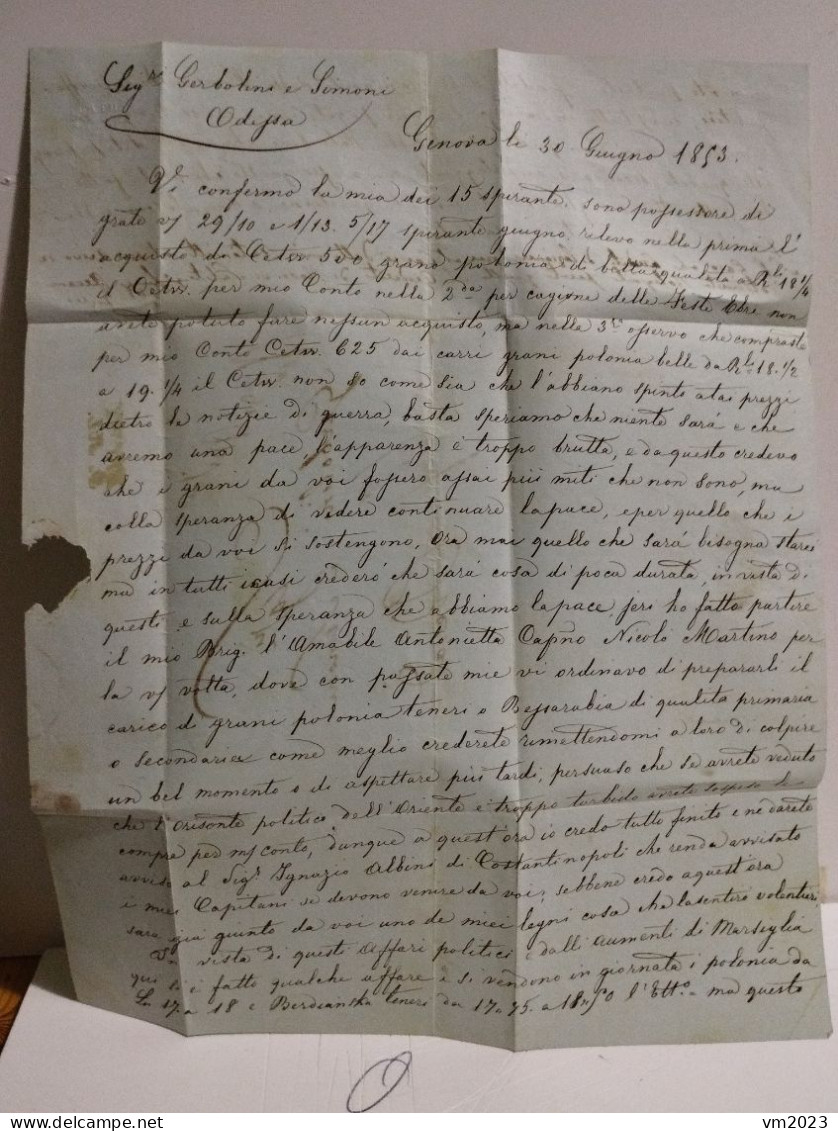 Sigri Gerbolini e Simoni
Odessa
Genova li 30 Giugno 1853.
Vi confermo la mia dei 15 spirante. sono possessore di
grate v/ 29/10 e 1/13. 5/17 spirante giugno, rilevo nella prima l'
acquisto di Cetw. 500 grano polonia di bella qualità a Rli 18 1/4
il Cetw. per mio Conto nella 2da per cagione delle Feste Ebre non
avete potuto fare nessun acquisto, ma nella 3a osservo che compraste
per mio Conto Cetw. 625 dai carri grani polonia belle da Rli 18. 1/2
a 19. 1/4 il Cetw. non so come sia che l'abbiano spinto a tai prezzi
dietro le notizie di guerra, basta speriamo che niente sará e che
avremo una pace, l'apparenza è troppo brutta, e da questo credevo
che i grani da voi fossero assai più miti che non sono, ma
colla speranza di vedere continuare la pace, e per quello che i
prezzi da voi si sostengono, Ora mai quello che sará bisogna starci
ma in tutti i casi crederó che sará cosa di poca durata, in vista di
questi e sulla speranza che abbiamo la pace, jeri ho fatto partire
il mio Brig. l'Amabile Antonietta Capno Nicolo Martino per
la v/ volta, dove con passate mie vi ordinavo di prepararli il
carico di grani polonia teneri o Bessarabia di qualità primaria
o secondaria come meglio crederete rimettendomi a loro di colpire
un bel momento o di aspettare più tardi, persuaso che se avrete veduto
che l'Orisonte politico dell'Oriente è troppo turbido avrete sospeso le
compre per m/ conto, dunque a quest'ora io credo tutto finito e ne darete
avviso al Sigr Ignazio Albini di Costantinopoli che renda avvisato
i miei Capitani se devono venire da voi; sebbene credo a quest'ora
sara già giunto da voi uno de miei legni cosa che la sentirò volentieri
In vista di questi affari politici e dall'aumenti di Marsiglia
qui si è fatto qualche affare e si vendono in giornata i polonia da
Ln 17. a 18 e Berdianska teneri da 17. 75. a 18. 50 l'Etto. ma questo
vm2023